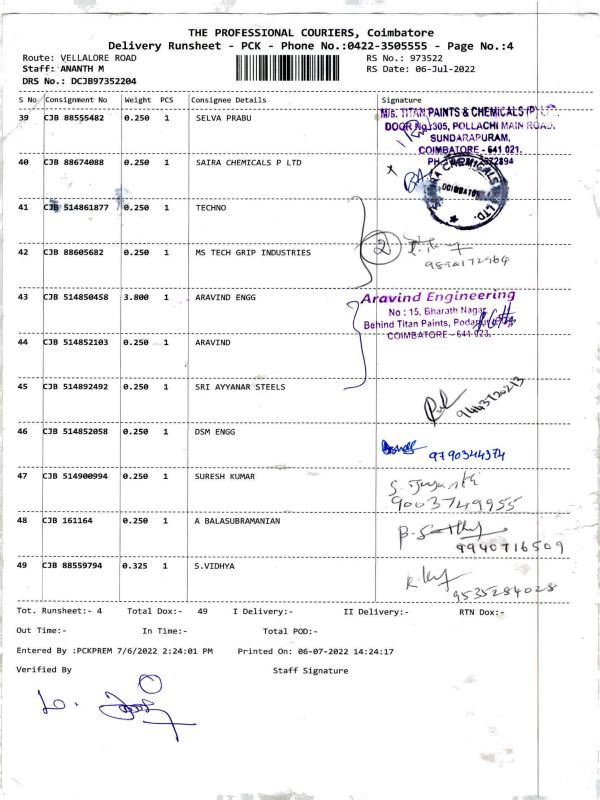 THE PROFESSIONAL COURIERS, Coimbatore
Delivery Runsheet - PCK - Phone No.:0422-3505555 - Page No.:4
Route: VELLALORE ROAD RS No.: 973522
Staff: ANANTH M RS Date: 06-Jul-2022
DRS No.: DCJB97352204
S No Consignment No Weight PCS Consignee Details Signature
39 CJB 88555482 0.250 1 SELVA PRABU
M/s. TITAN PAINTS & CHEMICALS (P) LTD.
DOOR No.305, POLLACHI MAIN ROAD,
SUNDARAPURAM,
COIMBATORE - 641 021.
40 CJB 88674088 0.250 1 SAIRA CHEMICALS P LTD
41 CJB 514861877 0.250 1 TECHNO
42 CJB 88605682 0.250 1 MS TECH GRIP INDUSTRIES
2
43 CJB 514850458 3.800 1 ARAVIND ENGG
Aravind Engineering
No : 15, Bharath Nagar,
Behind Titan Paints, Podanur
COIMBATORE - 641 023.
44 CJB 514852103 0.250 1 ARAVIND
45 CJB 514892492 0.250 1 SRI AYYANAR STEELS
46 CJB 514852058 0.250 1 DSM ENGG
9790344374
47 CJB 514900994 0.250 1 SURESH KUMAR
S. Jayanthi
9003749955
48 CJB 161164 0.250 1 A BALASUBRAMANIAN
9940716509
49 CJB 88559794 0.325 1 S.VIDHYA
9535284028
Tot. Runsheet:- 4 Total Dox:- 49 I Delivery:- II Delivery:- RTN Dox:-
Out Time:- In Time:- Total POD:-
Entered By :PCKPREM 7/6/2022 2:24:01 PM Printed On: 06-07-2022 14:24:17
Verified By Staff Signature